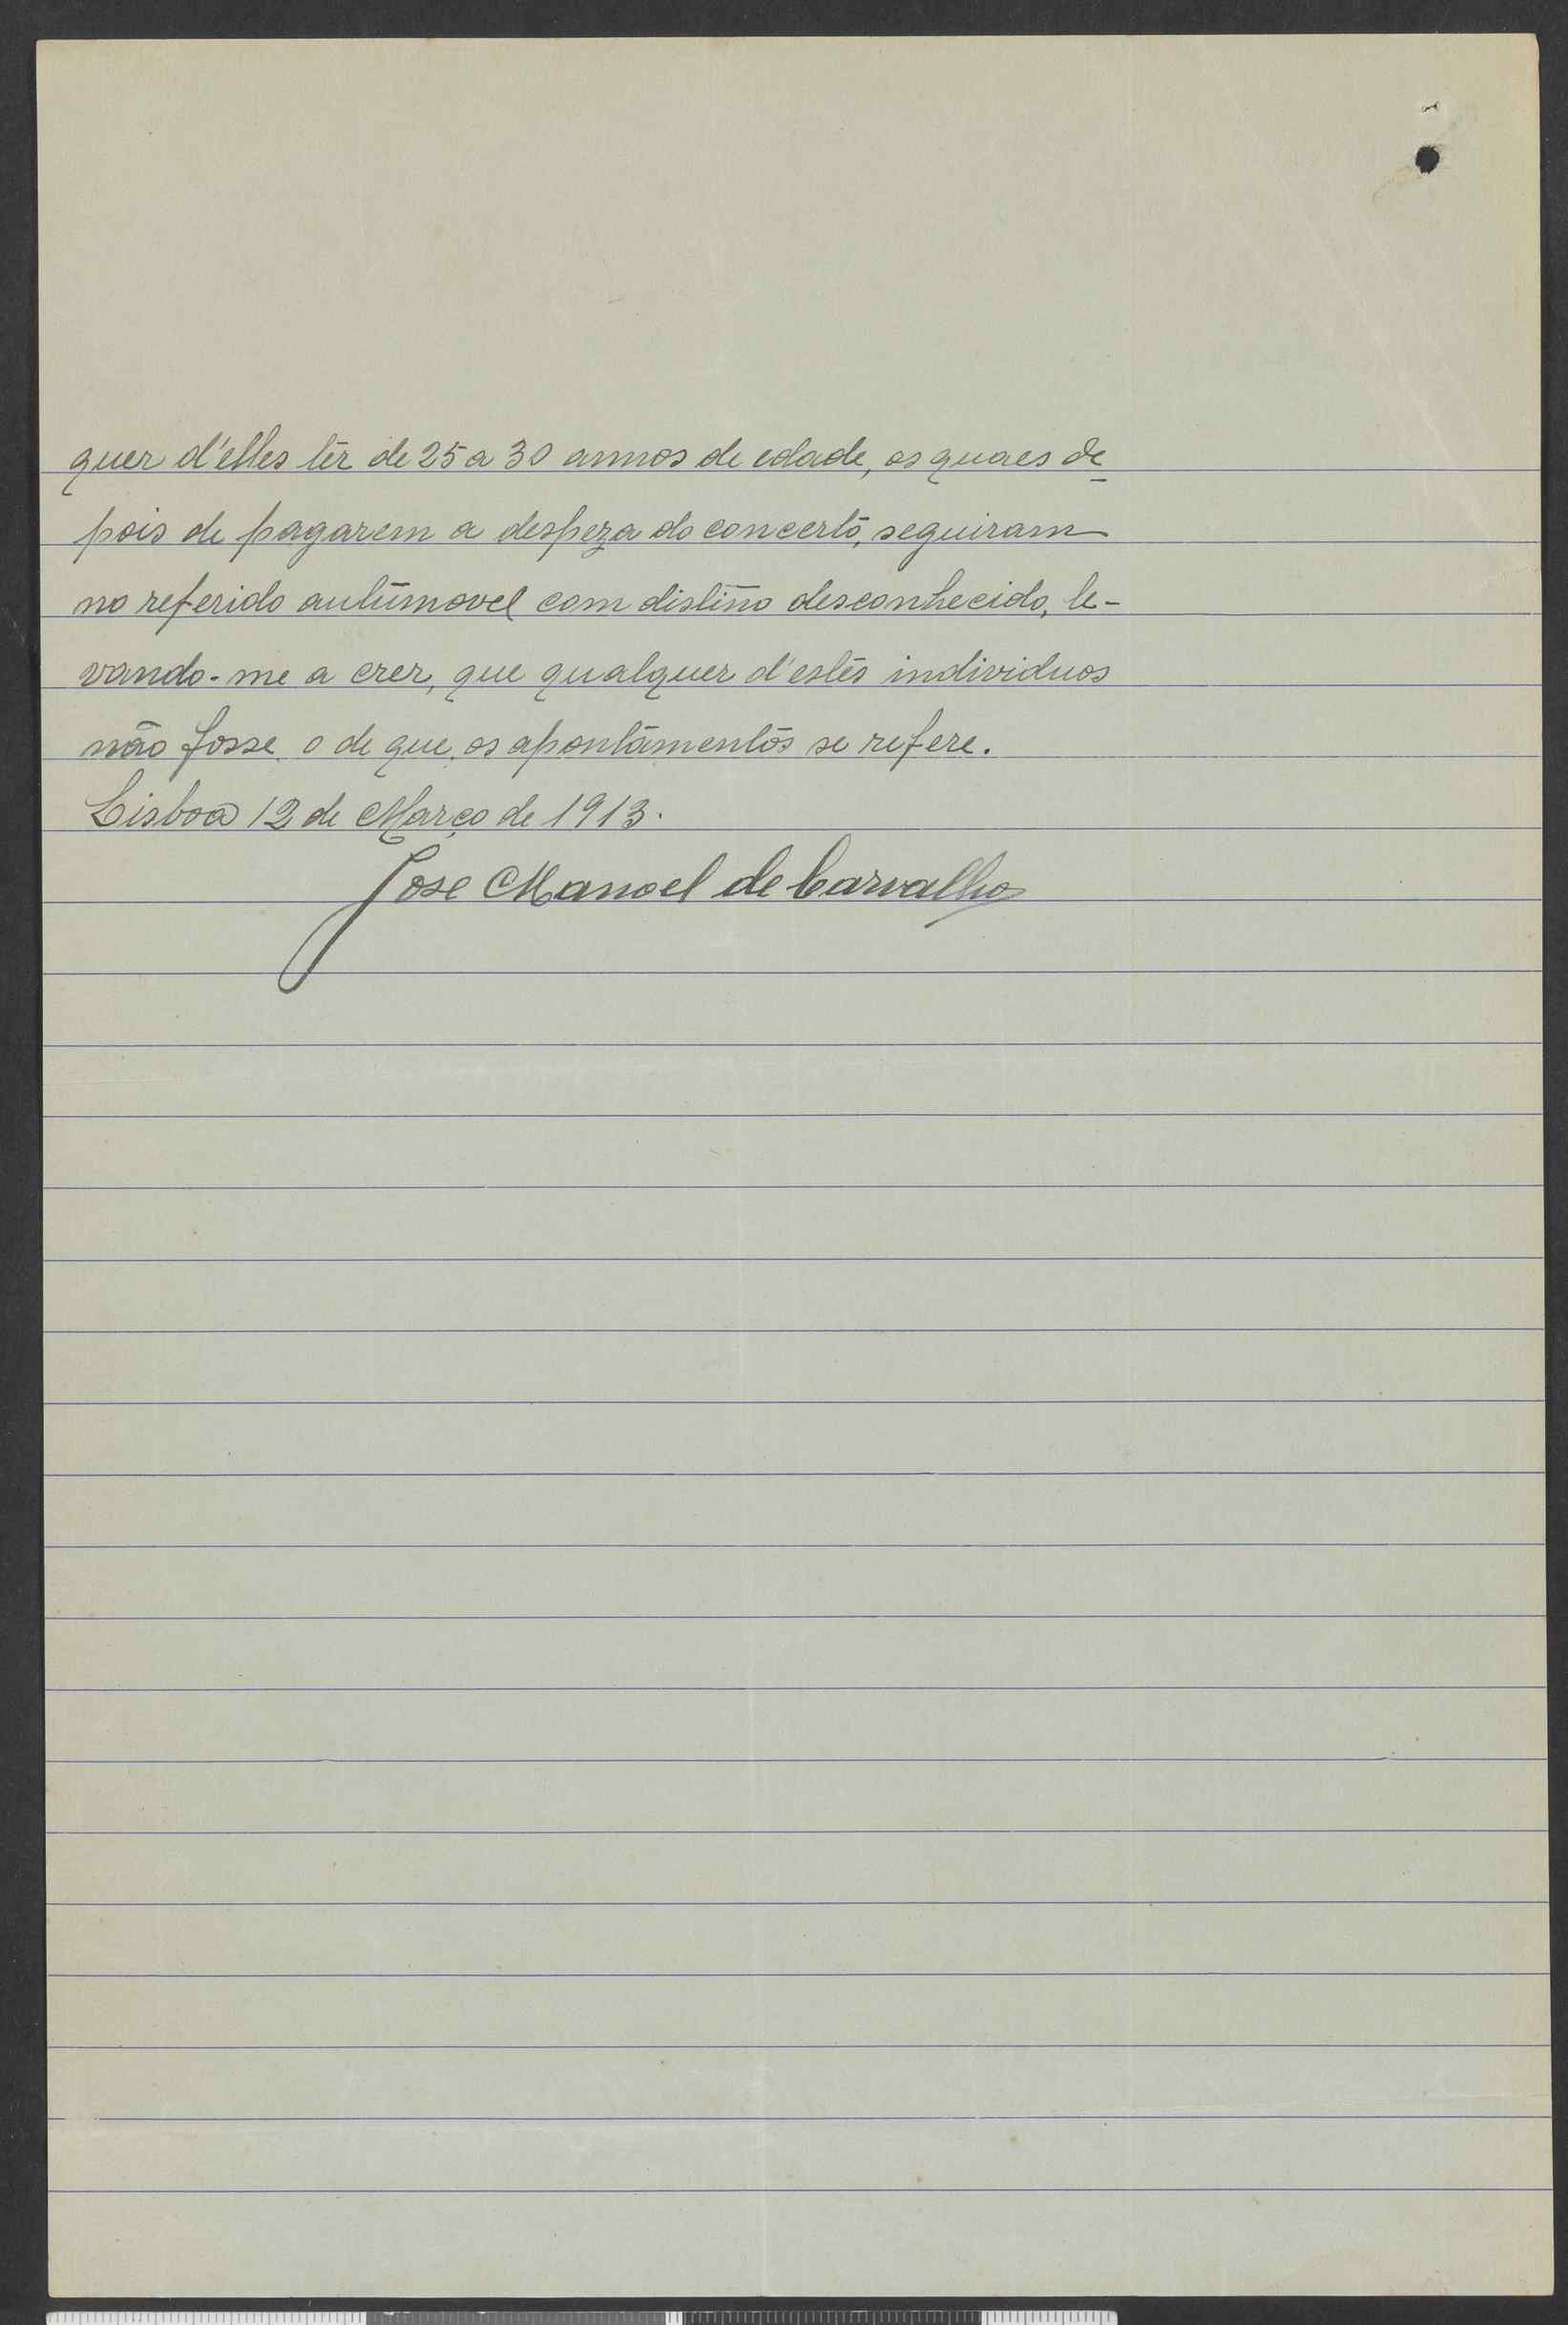 quer d'elles ter de 25 a 30 annos de edade, os quaes de
pois de pagarem a despeza do concerto, seguiram
no referido autumovel com distino desconhecido, le-
vando-me a crer, que qualquer d'estes individuos
não fosse o de que os apontamentos se refere.
Lisboa 12 de Março de 1913.
Jose Manoel de Carvalho